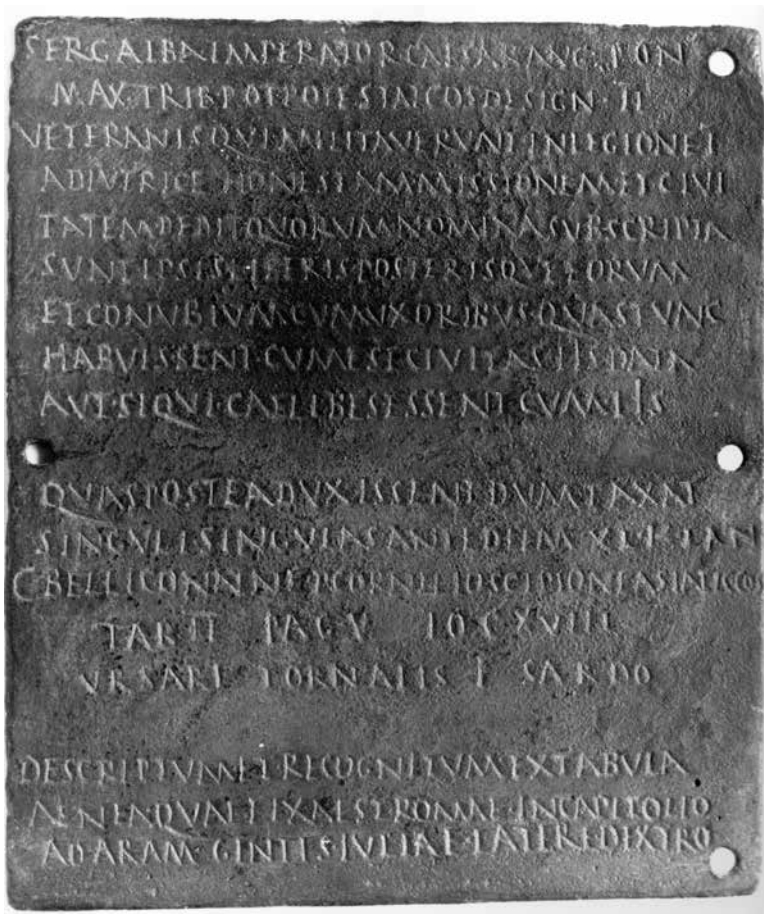 SER GALBA IMPERATOR CAESAR AUG PON
MAX TRIB POT POTESTAT COS DESIGN II
VETERANIS QUI MILITAVERUNT IN LEGIONE I
ADIVTRICE HONESTAM MISSIONEM ET CIVI
TATEM DEDIT QVORVM NOMINA SVBSCRIPTA
SVNT IPSIS LIBERIS POSTERISQVE EORVM
ET CONVBIVM CVM VXORIBVS QVAS TVNC
HABVISSENT CVM EST CIVITAS IIS DATA
AVT SI QVI CAELIBES ESSENT CVM IIS
QVAS POSTEA DVXISSENT DVMTAXAT
SINGVLI SINGVLAS ANTE DIEM XI K IAN
C BELLICO NATALE P CORNELIO SCIPIONE ASIATICO COS
TAB II PAG V LOC XVIII
VRSARI TORNALIS F SARDO
DESCRIPTVM ET RECOGNITVM EX TABVLA
AENEA QVAE FIXA EST ROMAE IN CAPITOLIO
AD ARAM GENTIS IVLIAE LATERE DEXTRO